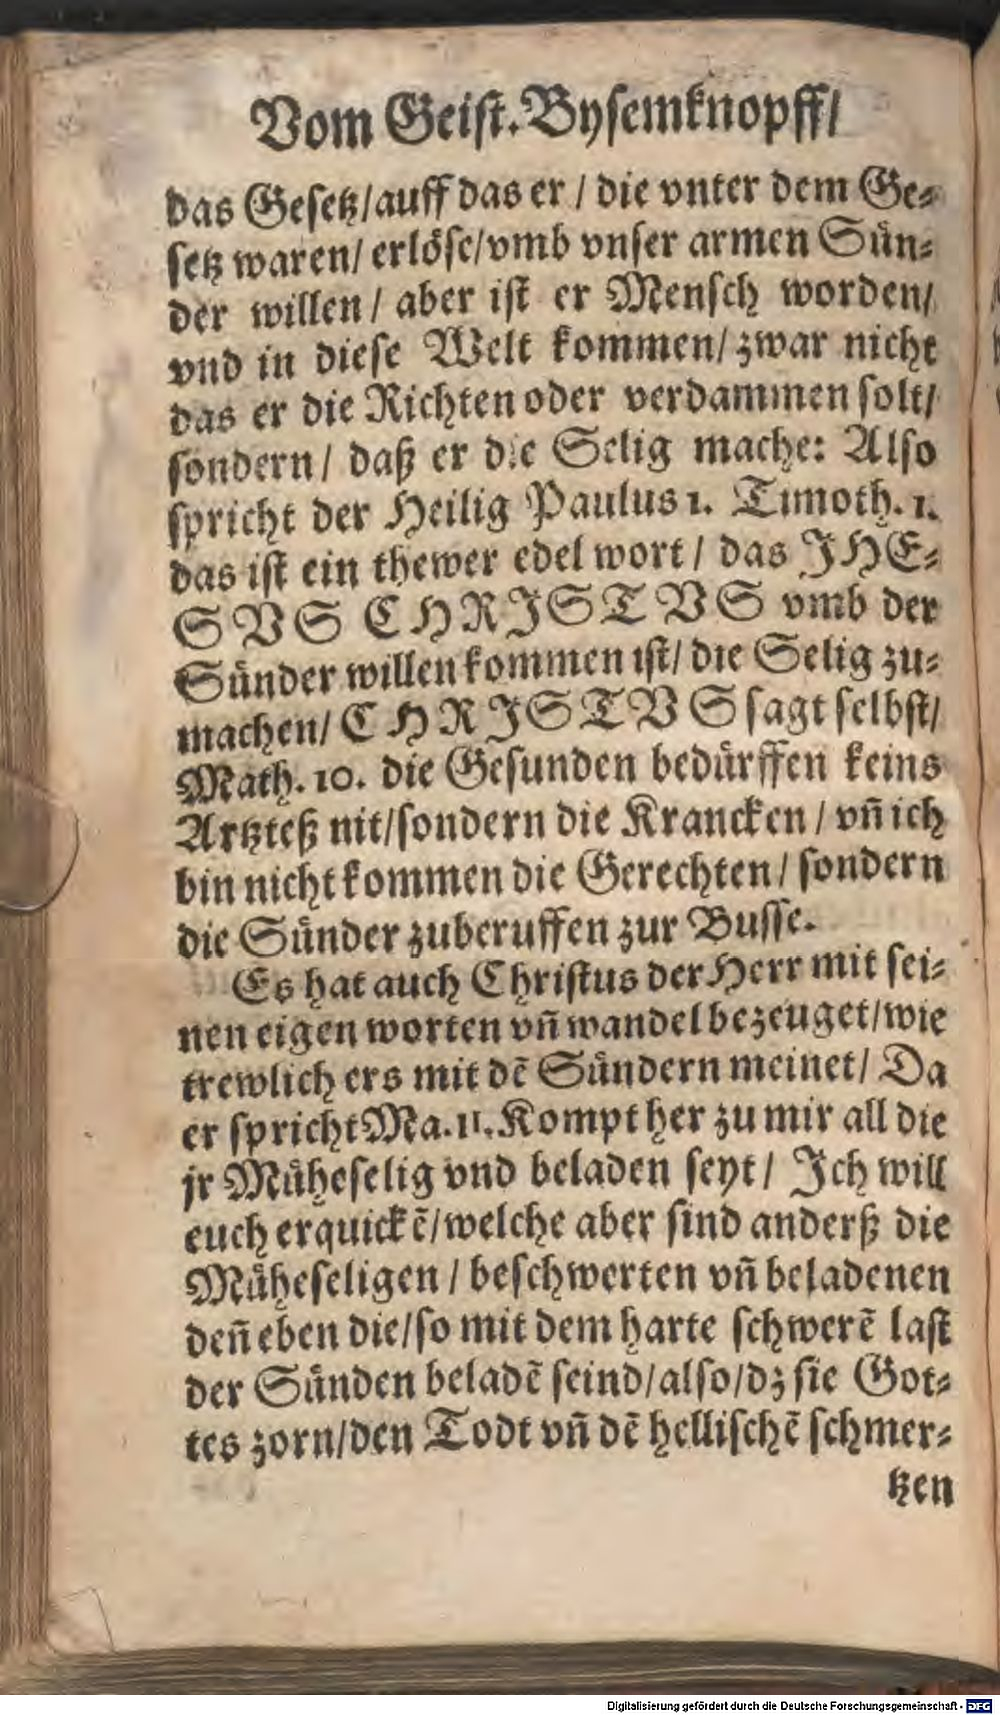 Vom Geist. Bysemknopff/
das Gesetz/auff das er / die vnter dem Ge-
setz waren/ erlöse/vmb vnser armen Sün-
der willen / aber ist er Mensch worden/
vnd in diese Welt kommen/ zwar nicht
das er die Richten oder verdammen solt/
sondern / daß er die Selig mache: Also
spricht der Heilig Paulus 1. Timoth. 1.
das ist ein thewer edel wort / das JHE-
SVS CHRJSTVS vmb der
Sünder willen kommen ist/ die Selig zu-
machen/ CHRJSTVS sagt selbst/
Math. 10. die Gesunden bedürffen keins
Artzteß nit/sondern die Krancken / vñ ich
bin nicht kommen die Gerechten / sondern
die Sünder zuberuffen zur Busse.
Es hat auch Christus der Herr mit sei-
nen eigen worten vñ wandel bezeuget/wie
trewlich ers mit dẽ Sündern meinet/ Da
er spricht Ma. 11. Kompt her zu mir all die
jr Müheselig vnd beladen seyt / Jch will
euch erquickẽ/welche aber sind anderß die
Müheseligen / beschwerten vñ beladenen
deñ eben die/so mit dem harte schwerẽ last
der Sünden beladẽ seind/also/dz sie Got-
tes zorn/den Todt vñ dẽ hellischẽ schmer-
tzen
Digitalisierung gefördert durch die Deutsche Forschungsgemeinschaft - DFG